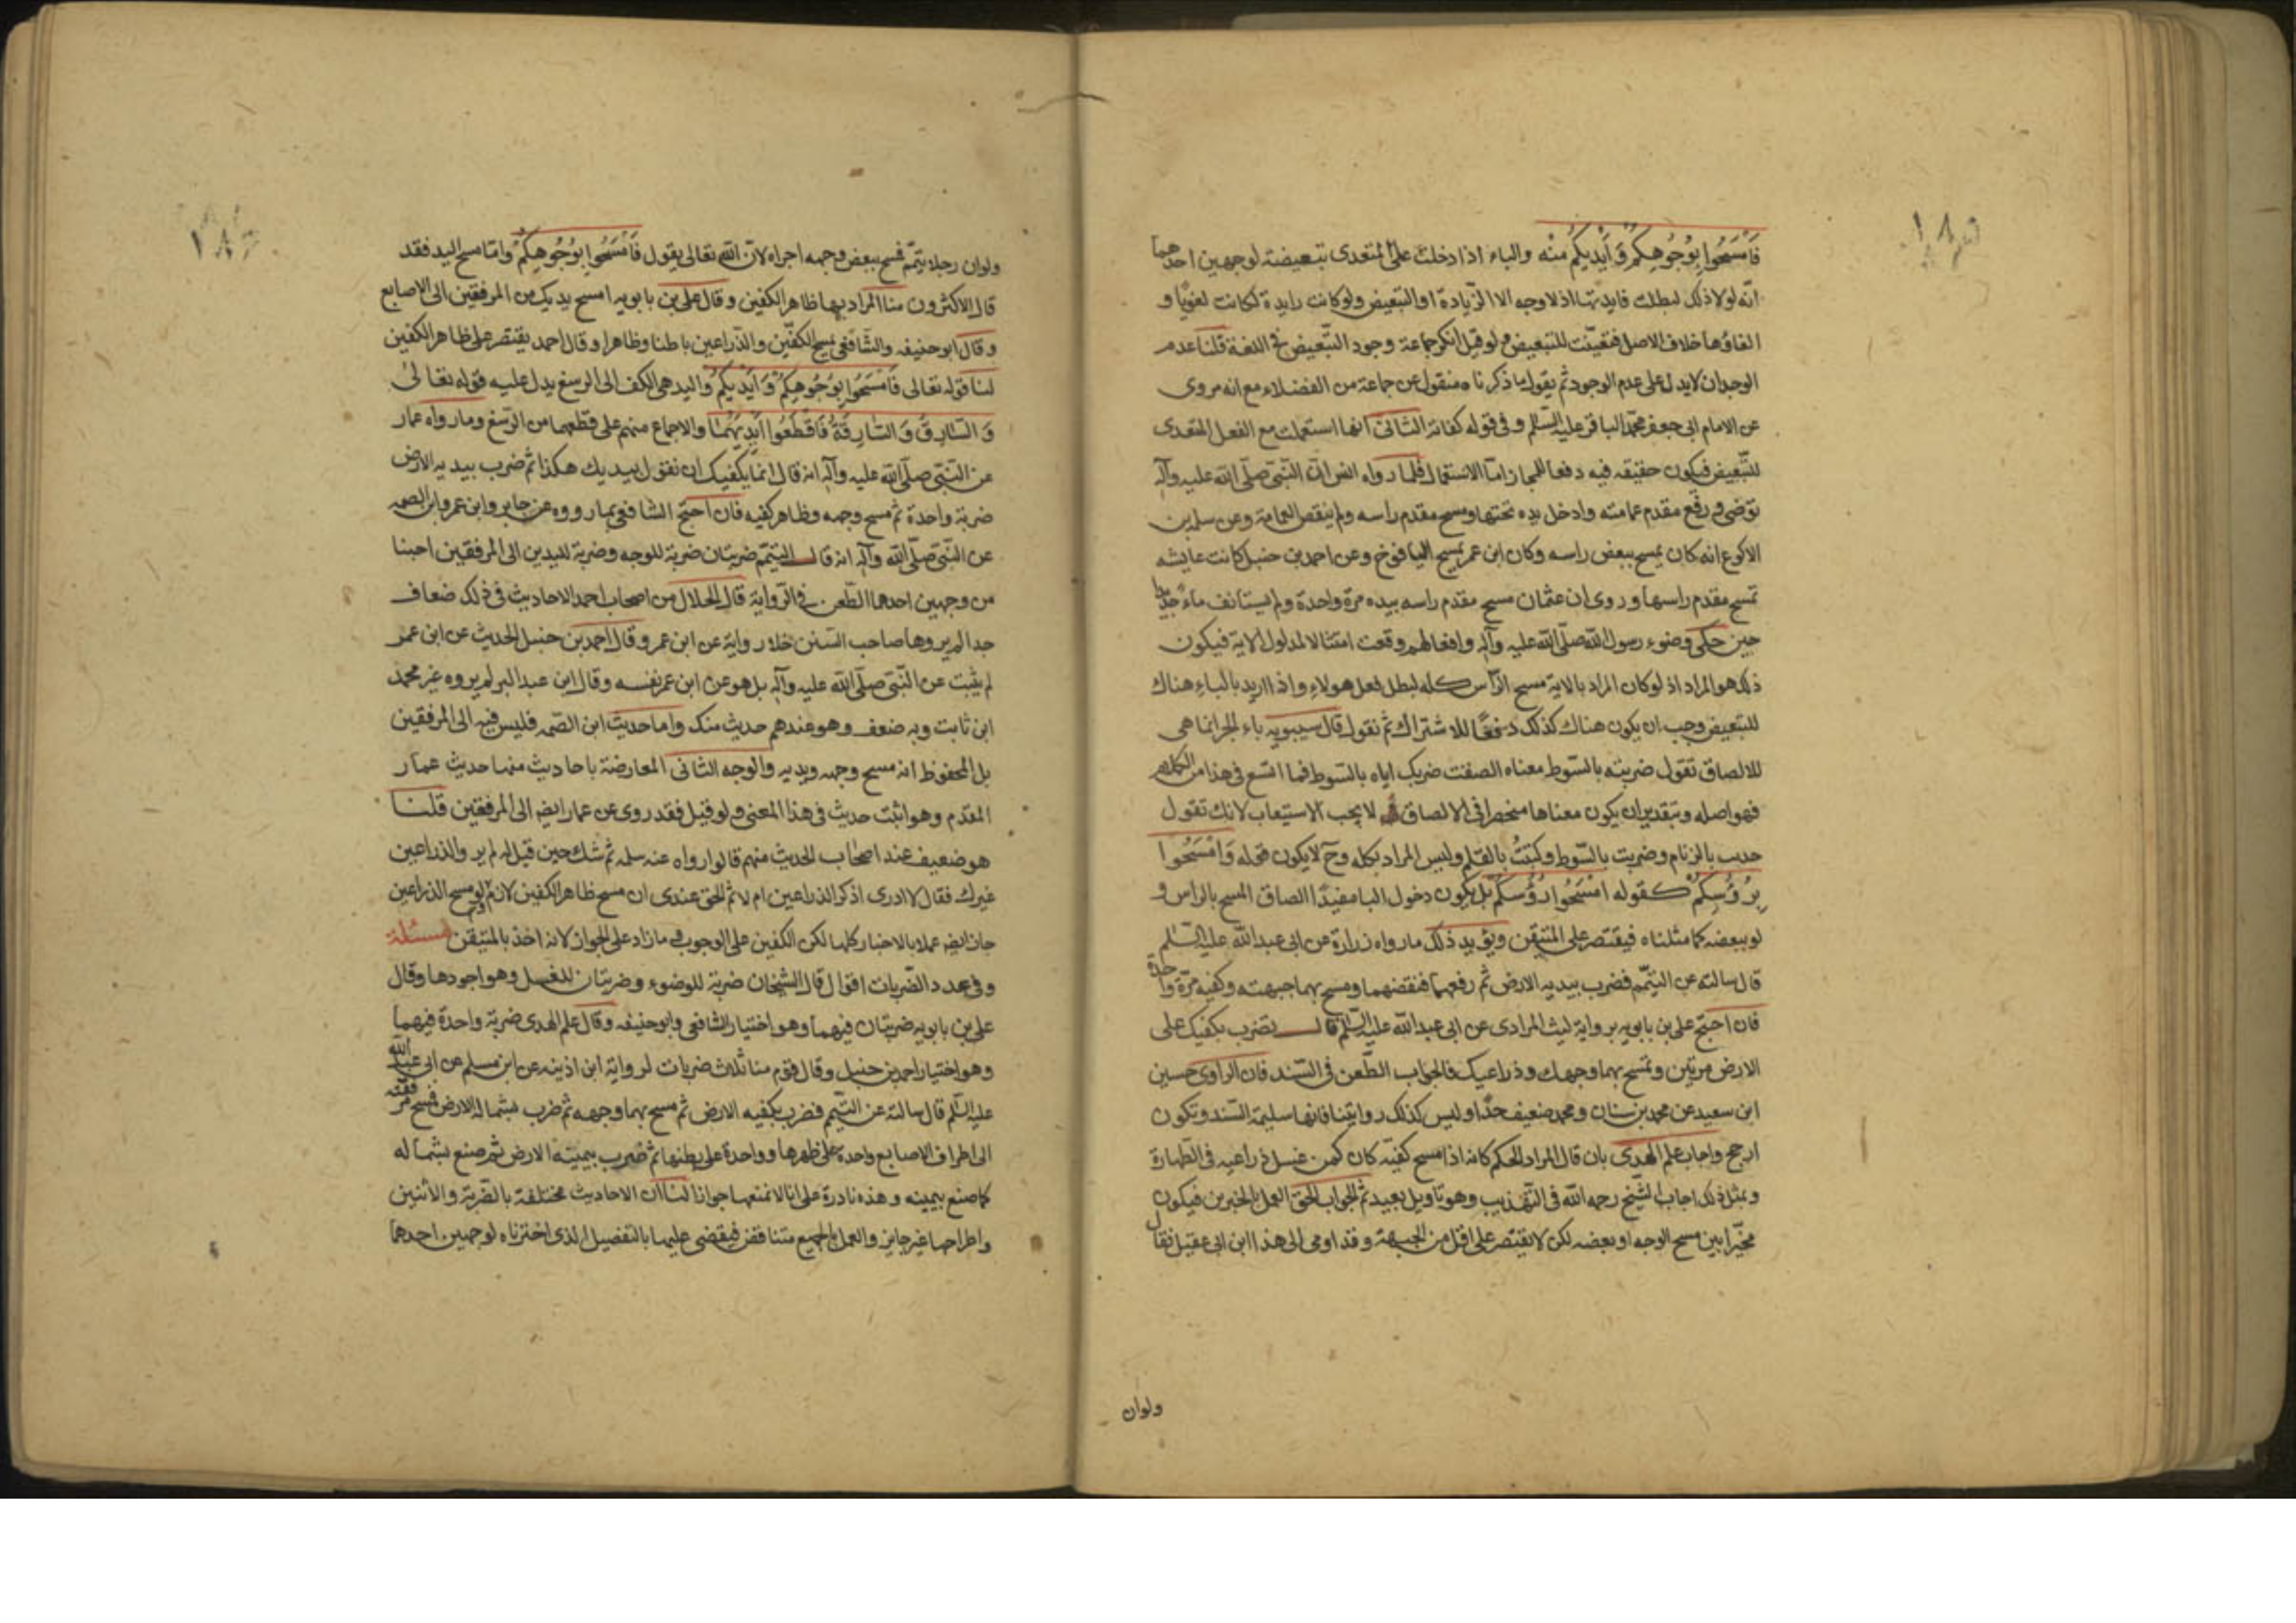 فَامْسَحُوا بِوُجُوهِكُمْ وَ أَيْدِيكُمْ مِنْه والباء اذا دخلت على المتعدى تبعيضة لوجهين احدهما
انّه لولا ذلك لبطلت فايدتها اذ لا وجه الا الزّيادة او التبعيض ولو كانت زايدة لكانت لغويا و
الغاؤها خلاف الاصل فتعيّنت للتبعيض ولو قيل انكر جماعة وجود التّبعيض فى اللغة قلنا عدم
الوجدان لا يدل على عدم الوجود ثم يقول ما ذكرناه منقول عن جماعة من الفضلاء مع انه مروى
عن الامام ابى جعفر محمّد الباقر عليه السّلم و فى قوله كفاية الثانى انها استعملت مع الفعل المتعدى
للتّبعيض فيكون حقيقه فيه دفعا للمجاز امّا الاستعمال فلما رواه انس انّ النّبىّ صلّى الله عليه وآله
توضى و رفع مقدم عمامته وادخل يده تحتها ومسح مقدم راسه ولم ينقض العمامة وعن سلمه بن
الاكوع انه كان يمسح ببعض راسه وكان ابن عمر يمسح اليافوخ وعن احمد بن حنبل كانت عايشه
تمسح مقدم راسها و روى ان عثمان مسح مقدم راسه بيده مرة واحدة ولم يستانف ماء جديدا
حين حكى وضوء رسول الله صلّى الله عليه وآله وافعالهم وقعت امتثالا لمدلول الاية فيكون
ذلك هو المراد اذ لو كان المراد بالاية مسح الرّأس كله لبطل فعل هولاء واذا اريد بالباء هناك
للتبعيض وجب ان يكون هناك كذلك دفعًا للاشتراك ثم نقول قال سيبويه باء الجر انما هى
للالصاق تقول ضربته بالسّوط معناه الصقت ضربك اياه بالسّوط فما اتسع فى هذا من الكلام
فهو اصله وبتقدير ان يكون معناها منحصرا فى الالصاق لا يجب الاستيعاب لانك تقول
جذبت بالزمام وضربت بالسّوط وكتبتُ بالقلم وليس المراد بكله وح لا يكون قوله وَامْسَحُوا
بِرُؤُسِكُمْ كقوله امْسَحُوا رُؤُسَكُمْ بل يكون دخول البا مفيدًا الصاق المسح بالراس و
لو ببعضه كما مثلناه فيقتصر على المتيقن ويؤيد ذلك ما رواه زرارة عن ابى عبد الله عليه السّلم
قال سالته عن التيمّم فضرب بيديه الارض ثم رفعهما فنفضهما ومسح بهما جبهته وكفيه مرّة واحدة
فان احتج على بن بابويه برواية ليث المرادى عن ابى عبد الله عليه السّلم قال تضرب بكفيك على
الارض مرتين وتمسح بهما وجهك وذراعيك فالجواب الطّعن فى السّند فان الراوى حسين
ابن سعيد عن محمد بن سنان ومحمد ضعيف جدًا وليس كذلك روايتنا فانها سليمة السّند وتكون
ارجح واجاب علم الهدى بان قال المراد الحكم كانه اذا مسح كفيّه كان كمن غسل ذراعيه فى الطّهارة
وبمثل ذلك اجاب الشّيخ رحمه الله فى التّهذيب وهو تاويل بعيد ثم الجواب الحق العمل بالخبرين فيكون
مخيّرا بين مسح الوجه او بعضه لكن لا يقتصر على اقل من الجبهة وقد اومى الى هذا ابن ابى عقيل فقال
ولوان
ولو ان رجلا يتمّم فمسح ببعض وجهه اجزاه لانّ الله تعالى يقول فَامْسَحُوا بِوُجُوهِكُمْ وامّا مسح اليد فقد
قال الاكثرون منا المراد بهما ظاهر الكفين وقال على بن بابويه امسح يديك من المرفقين الى الاصابع
وقال ابو حنيفه والشّافعى يمسح الكفّين والذّراعين باطنا وظاهرا وقال احمد يقتصر على ظاهر الكفين
لنا قوله تعالى فَامْسَحُوا بِوُجُوهِكُمْ وَ أَيْدِيكُمْ واليد هى الكف الى الرسغ يدل عليه قوله تعالى
وَ السَّارِقُ وَ السَّارِقَةُ فَاقْطَعُوا أَيْدِيَهُمَا والاجماع منهم على قطعهما من الرّسغ وما رواه عمار
عن النّبىّ صلّى الله عليه وآله انه قال انما يكفيك ان تقول بيديك هكذا ثم ضرب بيديه الارض
ضربة واحدة ثم مسح وجهه وظاهر كفيه فان احتج الشافعى بما رووه عن جابر وابن عمر وابن الصمه
عن النّبىّ صلّى الله وآله انه قال التيمّم ضربتان ضربة للوجه وضربة لليدين الى المرفقين اجبنا
من وجهين احدهما الطّعن فى الرّواية قال الخلال من اصحاب احمد الاحاديث فى ذلك ضعاف
جدا لم يروها صاحب السّنن خلا رواية عن ابن عمر وقال احمد بن حنبل الحديث عن ابن عمر
لم يثبت عن النّبى صلّى الله عليه وآله بل هو عن ابن عمر نفسه وقال ابن عبد البر لم يروه غير محمد
ابن ثابت وبه ضعف وهو عندهم حديث منكر واما حديث ابن الصّمه فليس فيه الى المرفقين
بل المحفوظ انه مسح وجهه ويديه والوجه الثانى المعارضة باحاديث منها حديث عمار
المقدم وهو اثبت حديث فى هذا المعنى ولو قيل فقد روى عن عمار ايضا الى المرفقين قلنا
هو ضعيف عند اصحاب الحديث منهم قالوا رواه عنه سلمه ثم شك حين قيل له لم يرو الذراعين
غيرك فقال لا ادرى اذكر الذراعين ام لا ثم الحق عندى ان مسح ظاهر الكفين لازم ولو مسح الذراعين
جاز ايضا عملا بالاخبار كلها لكن الكفين على الوجوب و ما زاد على الجواز لانه اخذ بالمتيقن مسئلة
وفى عدد الضّربات اقوال قال الشيخان ضربة للوضوء وضربتان للغسل وهو اجودها وقال
على بن بابويه ضربتان فيهما وهو اختيار الشافعى وابو حنيفه وقال علم الهدى ضربة واحدة فيهما
وهو اختيار احمد بن حنبل وقال قوم منا ثلاث ضربات لرواية ابن اذينه عن ابن مسلم عن ابى عبد الله
عليه السّلم قال سالته عن التيّمم فضرب بكفيه الارض ثم مسح بهما وجهه ثم ضرب بشماله الارض فمسح مرفقه
الى اطراف الاصابع واحدة على ظهرها وواحدة على بطنها ثم ضرب بيمينه الارض ثم صنع بشماله
كما صنع بيمينه وهذه نادرة على انا لا نمنعها جوازا لنا ان الاحاديث مختلفة بالضّربة والاثنين
واطراحها غير جايز والعمل بالجميع متناقض فيقضى عليها بالتفصيل الذى اخترناه لوجهين احدهما